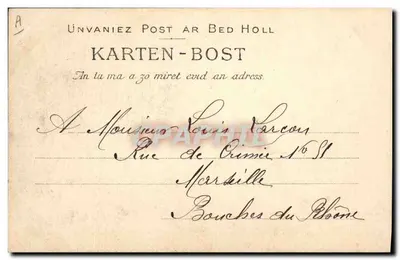 A
UNVANIEZ POST AR BED HOLL
KARTEN-BOST
An tu ma a zo miret evid an adress.
A Monsieur Louis Larçon
Rue de Crimée No 51
Marseille
Bouches du Rhône